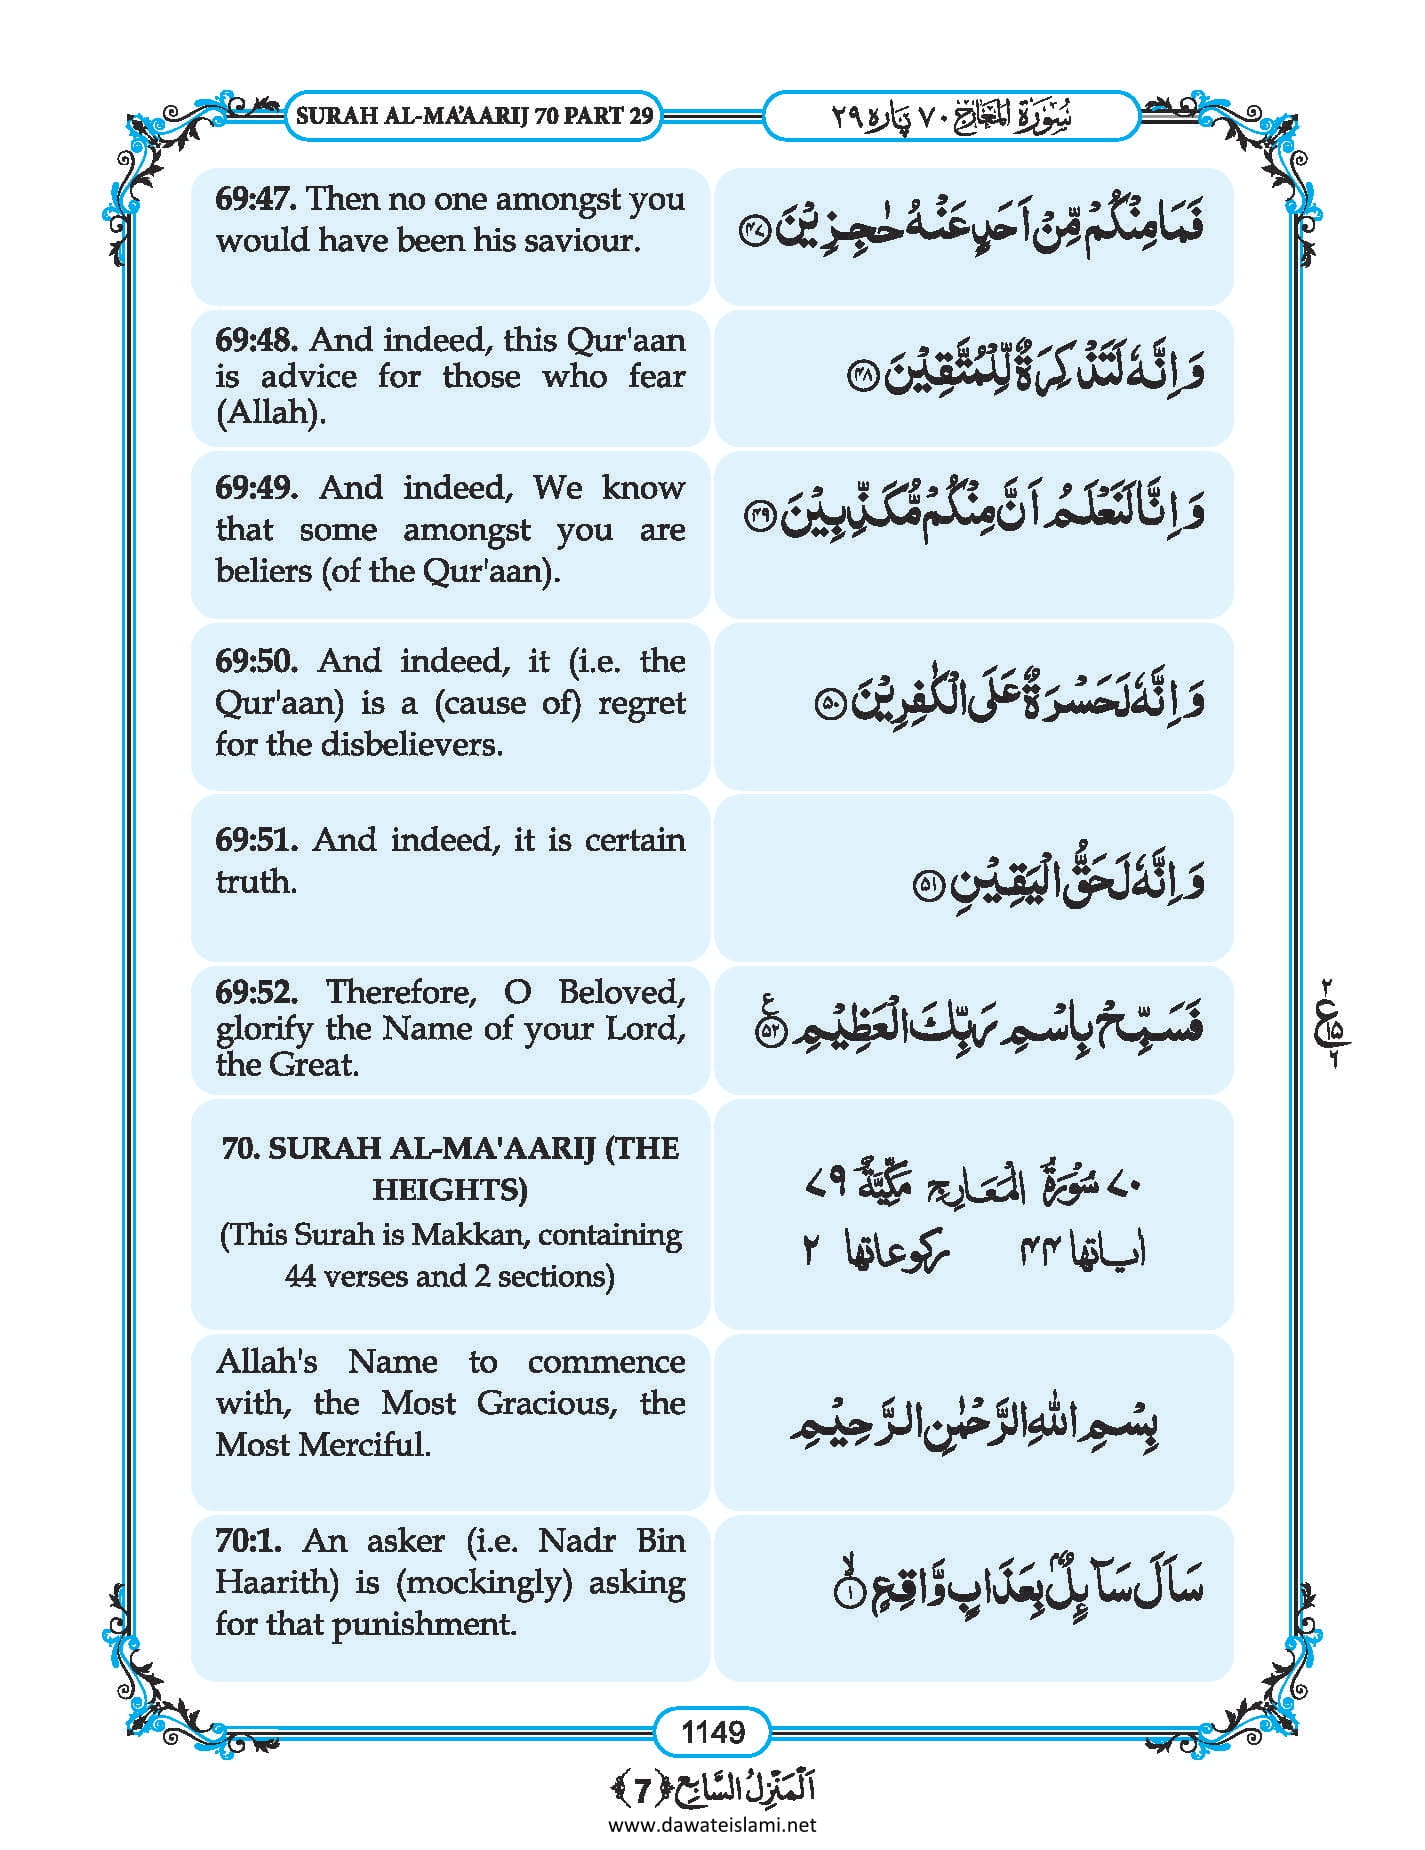 SURAH AL-MA’AARIJ 70 PART 29
سُوْرَةُ الْمَعَارِجِ ۷۰ پَارہ ۲۹
69:47. Then no one amongst you
would have been his saviour.
فَمَا مِنْكُمْ مِّنْ اَحَدٍ عَنْهُ حٰجِزِیْنَ ﴿۴۷﴾
69:48. And indeed, this Qur'aan
is advice for those who fear
(Allah).
وَ اِنَّهٗ لَتَذْكِرَةٌ لِّلْمُتَّقِیْنَ ﴿۴۸﴾
69:49. And indeed, We know
that some amongst you are
beliers (of the Qur'aan).
وَ اِنَّا لَنَعْلَمُ اَنَّ مِنْكُمْ مُّكَذِّبِیْنَ ﴿۴۹﴾
69:50. And indeed, it (i.e. the
Qur'aan) is a (cause of) regret
for the disbelievers.
وَ اِنَّهٗ لَحَسْرَةٌ عَلَی الْكٰفِرِیْنَ ﴿۵۰﴾
69:51. And indeed, it is certain
truth.
وَ اِنَّهٗ لَحَقُّ الْیَقِیْنِ ﴿۵۱﴾
69:52. Therefore, O Beloved,
glorify the Name of your Lord,
the Great.
فَسَبِّحْ بِاسْمِ رَبِّكَ الْعَظِیْمِ ﴿۵۲﴾ ع
۲
ع ۱۵
۶
70. SURAH AL-MA'AARIJ (THE
HEIGHTS)
(This Surah is Makkan, containing
44 verses and 2 sections)
۷۰ سُوْرَةُ الْمَعَارِجِ مَكِّیَّةٌ ۷۹
ایاتها ۴۴ رکوعاتها ۲
Allah's Name to commence
with, the Most Gracious, the
Most Merciful.
بِسْمِ اللّٰهِ الرَّحْمٰنِ الرَّحِیْمِ
70:1. An asker (i.e. Nadr Bin
Haarith) is (mockingly) asking
for that punishment.
سَاَلَ سَآىِٕلٌۢ بِعَذَابٍ وَّاقِعٍ ﴿۱﴾ۙ
1149
اَلْمَنْزِلُ السَّابِع ﴿7﴾
www.dawateislami.net